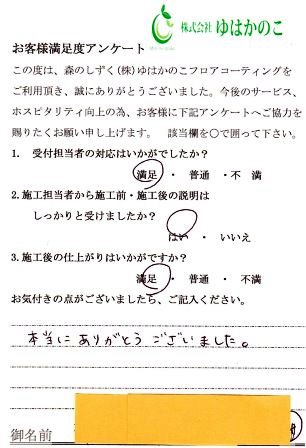 株式会社 ゆはかのこ
お客様満足度アンケート
この度は、森のしずく(株)ゆはかのこフロアコーティングを
ご利用頂き、誠にありがとうございました。今後のサービス、
ホスピタリティ向上の為、お客様に下記アンケートへご協力を
賜りたくお願い申し上げます。 該当欄を〇で囲って下さい。
1. 受付担当者の対応はいかがでしたか？
満足 ・ 普通 ・不 満
2.施工担当者から施工前・施工後の説明は
しっかりと受けましたか？
はい ・ いいえ
3.施工後の仕上がりはいかがですか？
満足 ・ 普通 ・ 不満
お気付きの点がございましたら、ご記入ください。
本当にありがとうございました。
御名前